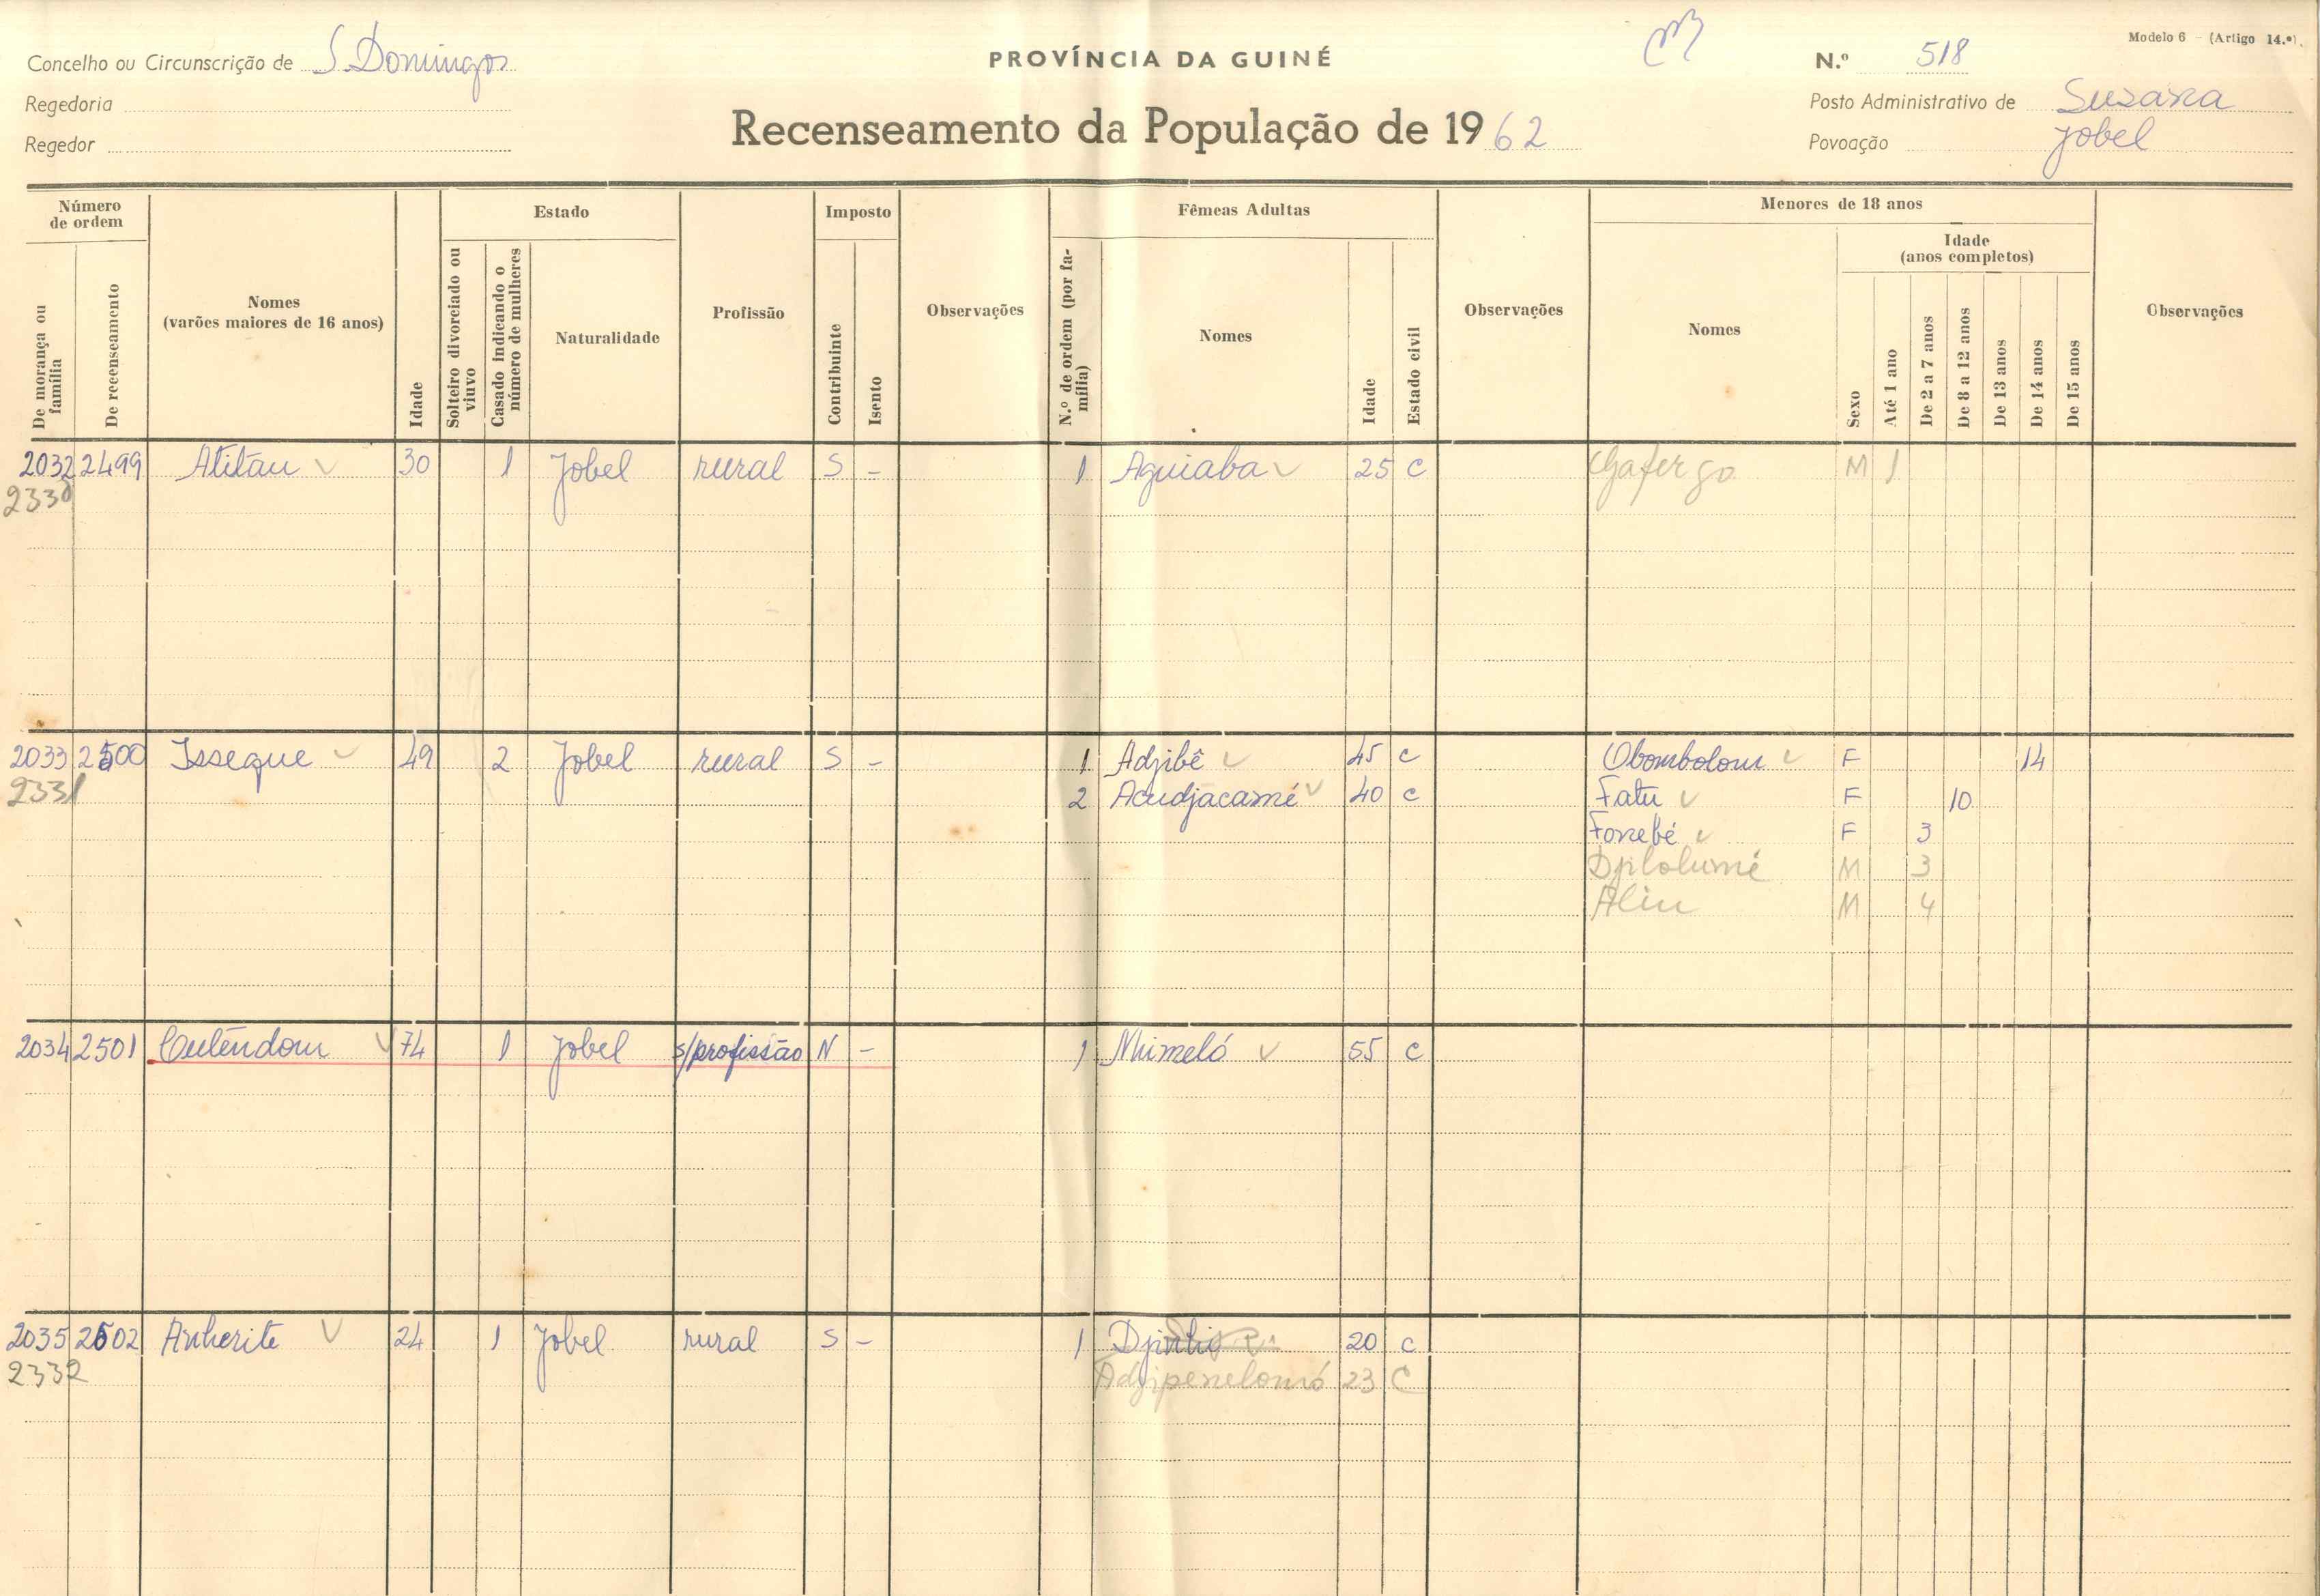 Modelo 6 - (Artigo 14.º).
Concelho ou Circunscrição de S. Domingos
PROVÍNCIA DA GUINÉ
N.º 518
Regedoria
Posto Administrativo de Suzana
Regedor
Recenseamento da População de 1962
Povoação Jobel
Número de ordem
De morança ou família
De recenseamento
Nomes
(varões maiores de 16 anos)
Idade
Estado
Solteiro divorciado ou viuvo
Casado indicando o número de mulheres
Naturalidade
Profissão
Imposto
Contribuinte
Isento
Observações
Fêmeas Adultas
N.º de ordem (por família)
Nomes
Idade
Estado civil
Observações
Menores de 18 anos
Nomes
Sexo
Idade
(anos completos)
Até 1 ano
De 2 a 7 anos
De 8 a 12 anos
De 13 anos
De 14 anos
De 15 anos
Observações
2032 2499 Atitau 30 1 Jobel rural S - 1 Aguiaba 25 C M 1
2330
2033 2500 Isseque 49 2 Jobel rural S - 1 Adjibê 45 C Obombolom F 14
2331 2 Acudjacamé 40 C Fatu F 10
Fonebé F 3
M 3
Aliu M 4
2034 2501 Cutêndom 74 1 Jobel s/profissão N - 1 Nhimeló 55 C
2035 2502 Anherite 24 1 Jobel rural S - 1 20 C
2332 Adjipenelomó 23 C